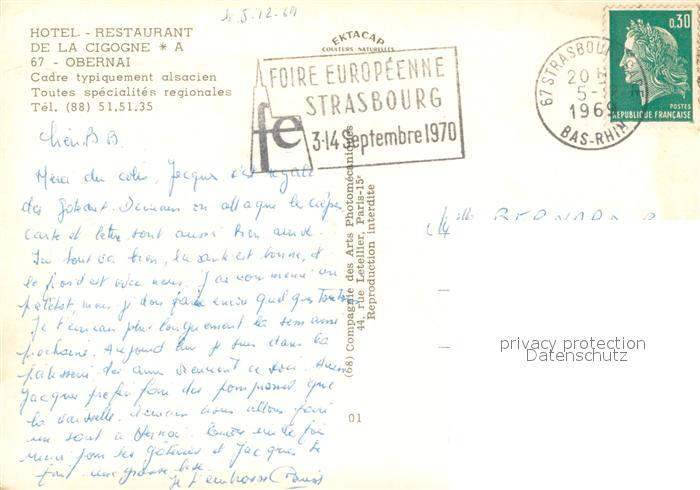 le 5-12-69
HOTEL - RESTAURANT
DE LA CIGOGNE * A
67 - OBERNAI
Cadre typiquement alsacien
Toutes spécialités regionales
Tél. (88) 51.51.35
EKTACAP
COULEURS NATURELLES
FOIRE EUROPÉENNE
STRASBOURG
fe 3-14 septembre 1970
67 STRASBOURG GARE
20 H
5-
1969
BAS-RHIN
0,30
POSTES
REPUBLIQUE FRANÇAISE
Chère B B.
Merci du colis, Jacques s'est régalé
des gâteaux. Demain on attaque les crêpes
carte et lettre sont aussi bien arrivé.
Ici tout va bien, la santé est bonne, et
le froid est avec nous. J'ai
mais je dois faire encore quelques
Je t'écrirai plus longuement la semaine
prochaine. Aujourd'hui je suis dans la
pâtisserie des amis viennent ce soir.
Jacques préfère faire des pompones que
la vaisselle. Demain nous allons faire
un saut à Bernai.
merci pour les gâteries et Jacques te
fait une grosse bise.
je t'embrasse
(68) Compagnie des Arts Photomécaniques
44, rue Letellier, Paris-15e
Reproduction interdite
01
Mlle BERNARD B
privacy protection
Datenschutz